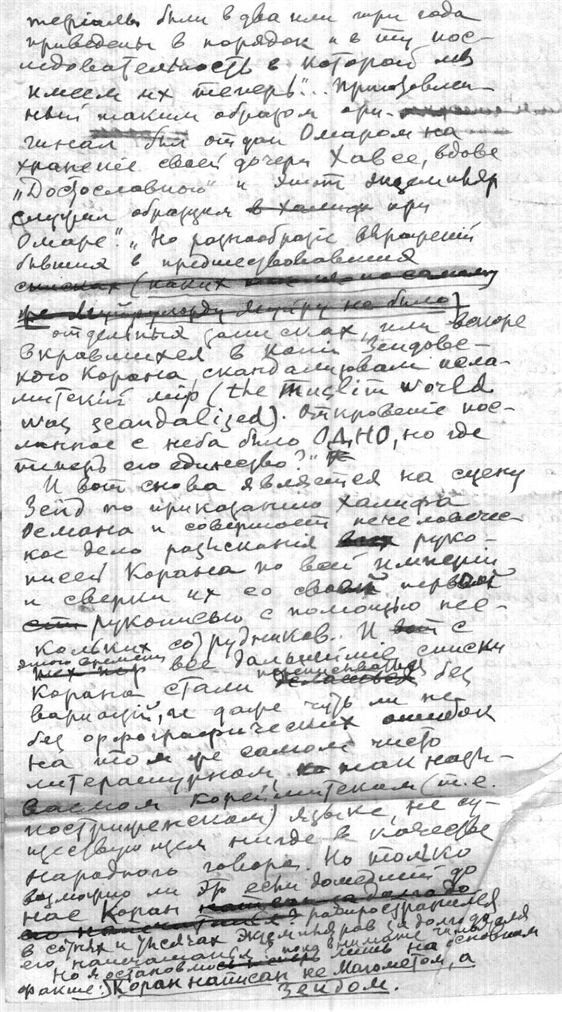 теріалы были в два или три года
приведены в порядок и в ту пос-
ледовательность в которой мы
имеем их теперь"... Произведен-
ный таким образом ори-
гинал был отдан Омаром на
храненіе своей дочери Хавсе, вдове
„Достославного" и этот экземпляр
служил образцом в Халиф при
Омаре". „Но разнообразіе выражений
бывшия в предшествовавших
списках (каких
не было)
отдельных записках, или вскоре
вкравшихся в копіи Зеидовс-
кого Корана, скандализовали исла-
митский мір (the muslim world
was scandalized). Откровеніе пос-
ланное с неба было ОДНО, но где
теперь его единство?"
И вот снова является на сцену
Зеид по приказанию Халифа
Османа и совершает нечеловечес-
кое дело разыскания всех руко-
писей Корана по всей имперіи
и сверки их со своей первой
рукописью с помощью нес-
кольких сотрудников. И с
этого времени все дальнейшие списки
Корана стали без
варіаций, и даже чуть ли не
без орфографических ошибок
на том же самом чисто
литературном, так назы-
ваемом Корейшитском (т.е.
) языке, не су-
ществующем нигде в качестве
народного говора. Но только
возможно ли это если дошедший до
нас Коран
распространялся
в сотнях и тысячах экземпляров за до
его напечатания?
Но я остановлю внимание читателя
лишь на основном
факте: Коран написан не Магометом, а
Зеидом.